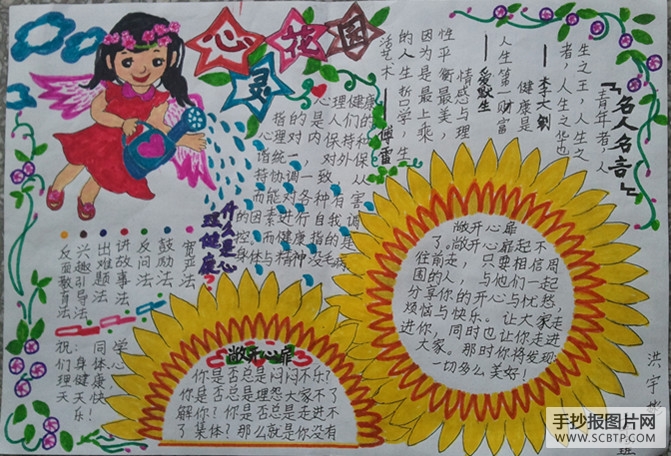 心灵花园
『名人名言』
青年者，人
生之王，人生之
者，人生之华也
——李大钊
健康是
人生第一财富
——爱默生
情感与理
性平衡最美，
因为是最上乘
的人生哲学、生
活艺术
——傅雷
什么是心
理健康？
心理健康
指的是人们的
心理对内保持和
谐统一，对外保
持协调一致，从
而能对各种有害
的因素进行自我调
控，而健康指的是
身体与精神没毛病
宽严法
鼓励法
反问法
讲故事法
出难题法
兴趣引导法
反面教育法
祝：同学
们身体心
理健康快
天天乐！
敞开心扉
你是否总是闷闷不乐？
你是否总是埋怨大家不了
解你？你是否总是走进不
了集体？那么就是你没有
敞开心扉
了。敞开心扉起不
往前走，只要相信周
围的人，与他们一起
分享你的开心与忧愁
烦恼与快乐。让大家走
进你，同时也让你走进
大家。那时你将发现
一切多么美好！
洪宇
班
手抄报图片网
WWW.SCBTP.COM